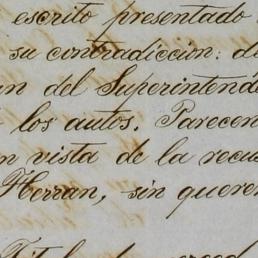 escrito presentado
su contradiccion: de
del Superintende
los autos. Parecen
vista de la recu
Herran, sin queren